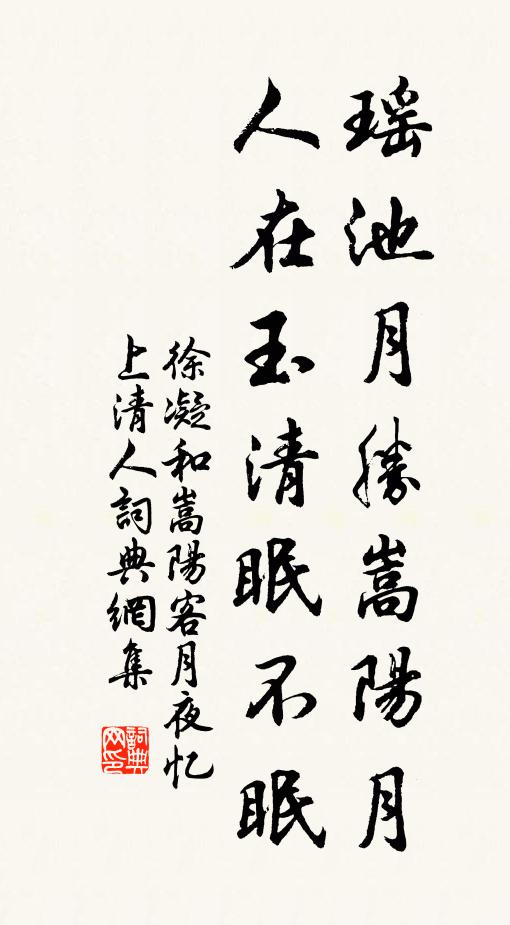 瑶池月勝嵩陽月
人在玉清眠不眠
徐凝和嵩陽客月夜忆
上清人詞典網集
詞典
网印